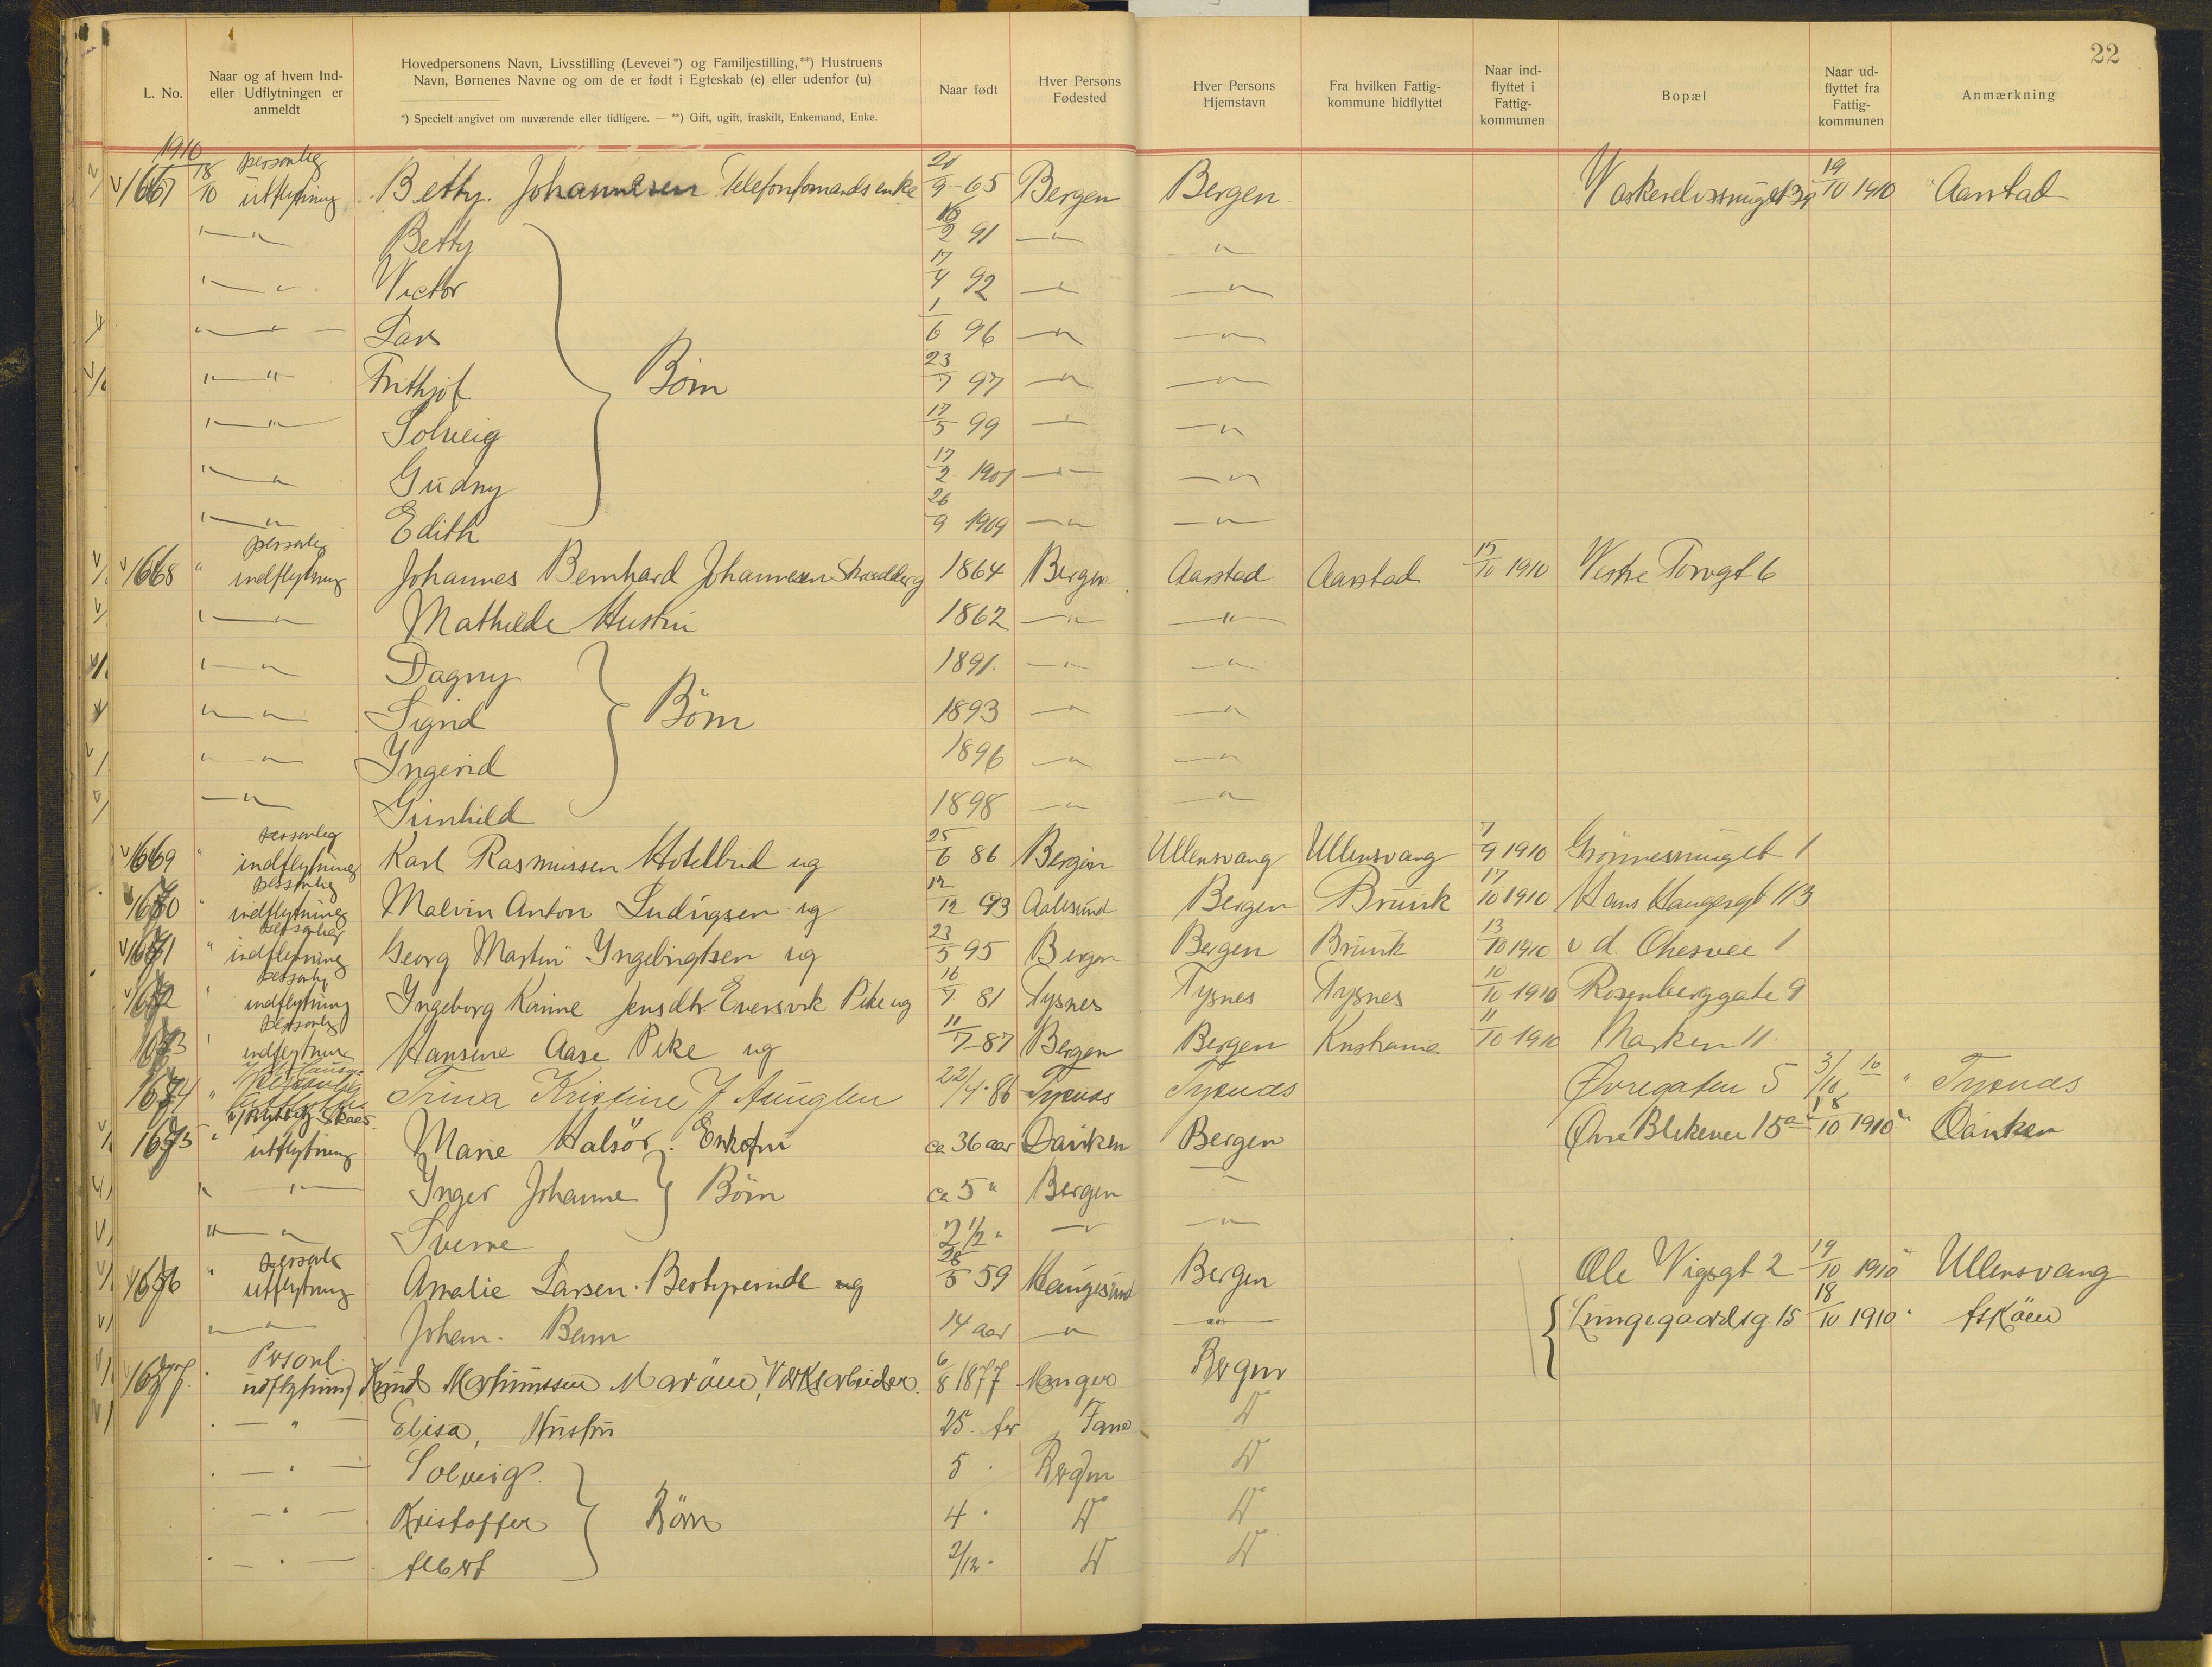 22
L. No.
Naar og af hvem Ind- eller Udflytningen er anmeldt
Hovedpersonens Navn, Livsstilling (Levevei*) og Familjestilling,**) Hustruens Navn, Børnenes Navne og om de er født i Egteskab (e) eller udenfor (u)
*) Specielt angivet om nuværende eller tidligere. — **) Gift, ugift, fraskilt, Enkemand, Enke.
Naar født
Hver Persons Fødested
Hver Persons Hjemstavn
Fra hvilken Fattig- kommune hidflyttet
Naar ind- flyttet i Fattig- kommunen
Bopæl
Naar ud- flyttet fra Fattig- kommunen
Anmærkning
1910
1667 18/10 personlig utflytning Betty Johannesen Telefonformands enke 20/9 - 65 Bergen Bergen 19/10 1910 Aarstad
" — " Betty 16/2 91 — " — "
" — " Victor 17/4 92 — " — "
" — " Lars 1/6 96 — " — "
" — " Frithjof Börn 23/7 97 — " — "
" — " Solveig 17/5 99 — " — "
" — " Gudny 17/2 - 1901 — " — "
" — " Edith 26/9 1909 — " — "
1668 " personlig indflytning Johannes Bernhard Johannesen Skrædder g 1864 Bergen Aarstad Aarstad 15/10 1910 Vestre Torvgt 6
" — " Mathilde Hustru 1862 — " — "
" — " Dagny 1891. — " — "
" — " Sigrid Börn 1893 — " — "
" — " Ingerid 1896 — " — "
— " Gunhild 1898 — " — "
1669 " personlig indflytning Karl Rasmussen Hotelbud ug 25/6 86 Bergen Ullensvang Ullensvang 7/9 1910 Grönnesmuget 1
1670 " personlig indflytning Malvin Anton Ludvigsen ug 12/12 93 Aalesund Bergen Bruvik 17/10 1910 Hans Haugesgt 113
1671 " personlig indflytning Georg Martin Ingebrigtsen ug 23/5 95 Bergen Bergen Bruvik 13/10 1910 1
1672 " personlig indflytning Ingeborg Karine Jensdtr. Eversvik Pike ug 16/7 81 Tysnes Tysnes Tysnes 10/10 1910 Rosenberggate 9
1673 " personlig indflytning Hansine Aase Pike ug 11/7 - 87 Bergen Bergen 11/10 1910 Marken 11
1674 " Trina Kristine J 22/4 - 86 Tysnæs Tysnæs Øvregaten 5 3/10 10 " Tysnæs
1675 " utflytning Marie Halsör. Enkefru ca 36 aar Daviken Bergen Øvre Blekevei 15 a 18/10 1910 " Daviken
" — " Inger Johanne Börn ca 5 " Bergen — "
" — " Sverre 2 1/2 " — " — "
1676 " personlig utflytning Amalie Larsen. Bestyrerinde ug 28/5 59 Haugesund Bergen Ole Vigsgt 2 19/10 1910 " Ullensvang
" — " Johan. Barn 14 aar — " — " Lungegaardsg. 15 18/10 1910 " Askøen
1677. " Personl. utflytning Knud Martinussen Marøen, Værksarbeider. 6/8 1877 Manger Bergen
" — " — Elisa, Hustru 25. år Fane Do
" — " — Solveig. 5 " Bergen Do
" — " — Kristoffer Börn 4 " Do Do
" — " — Albert 2/12 " Do Do